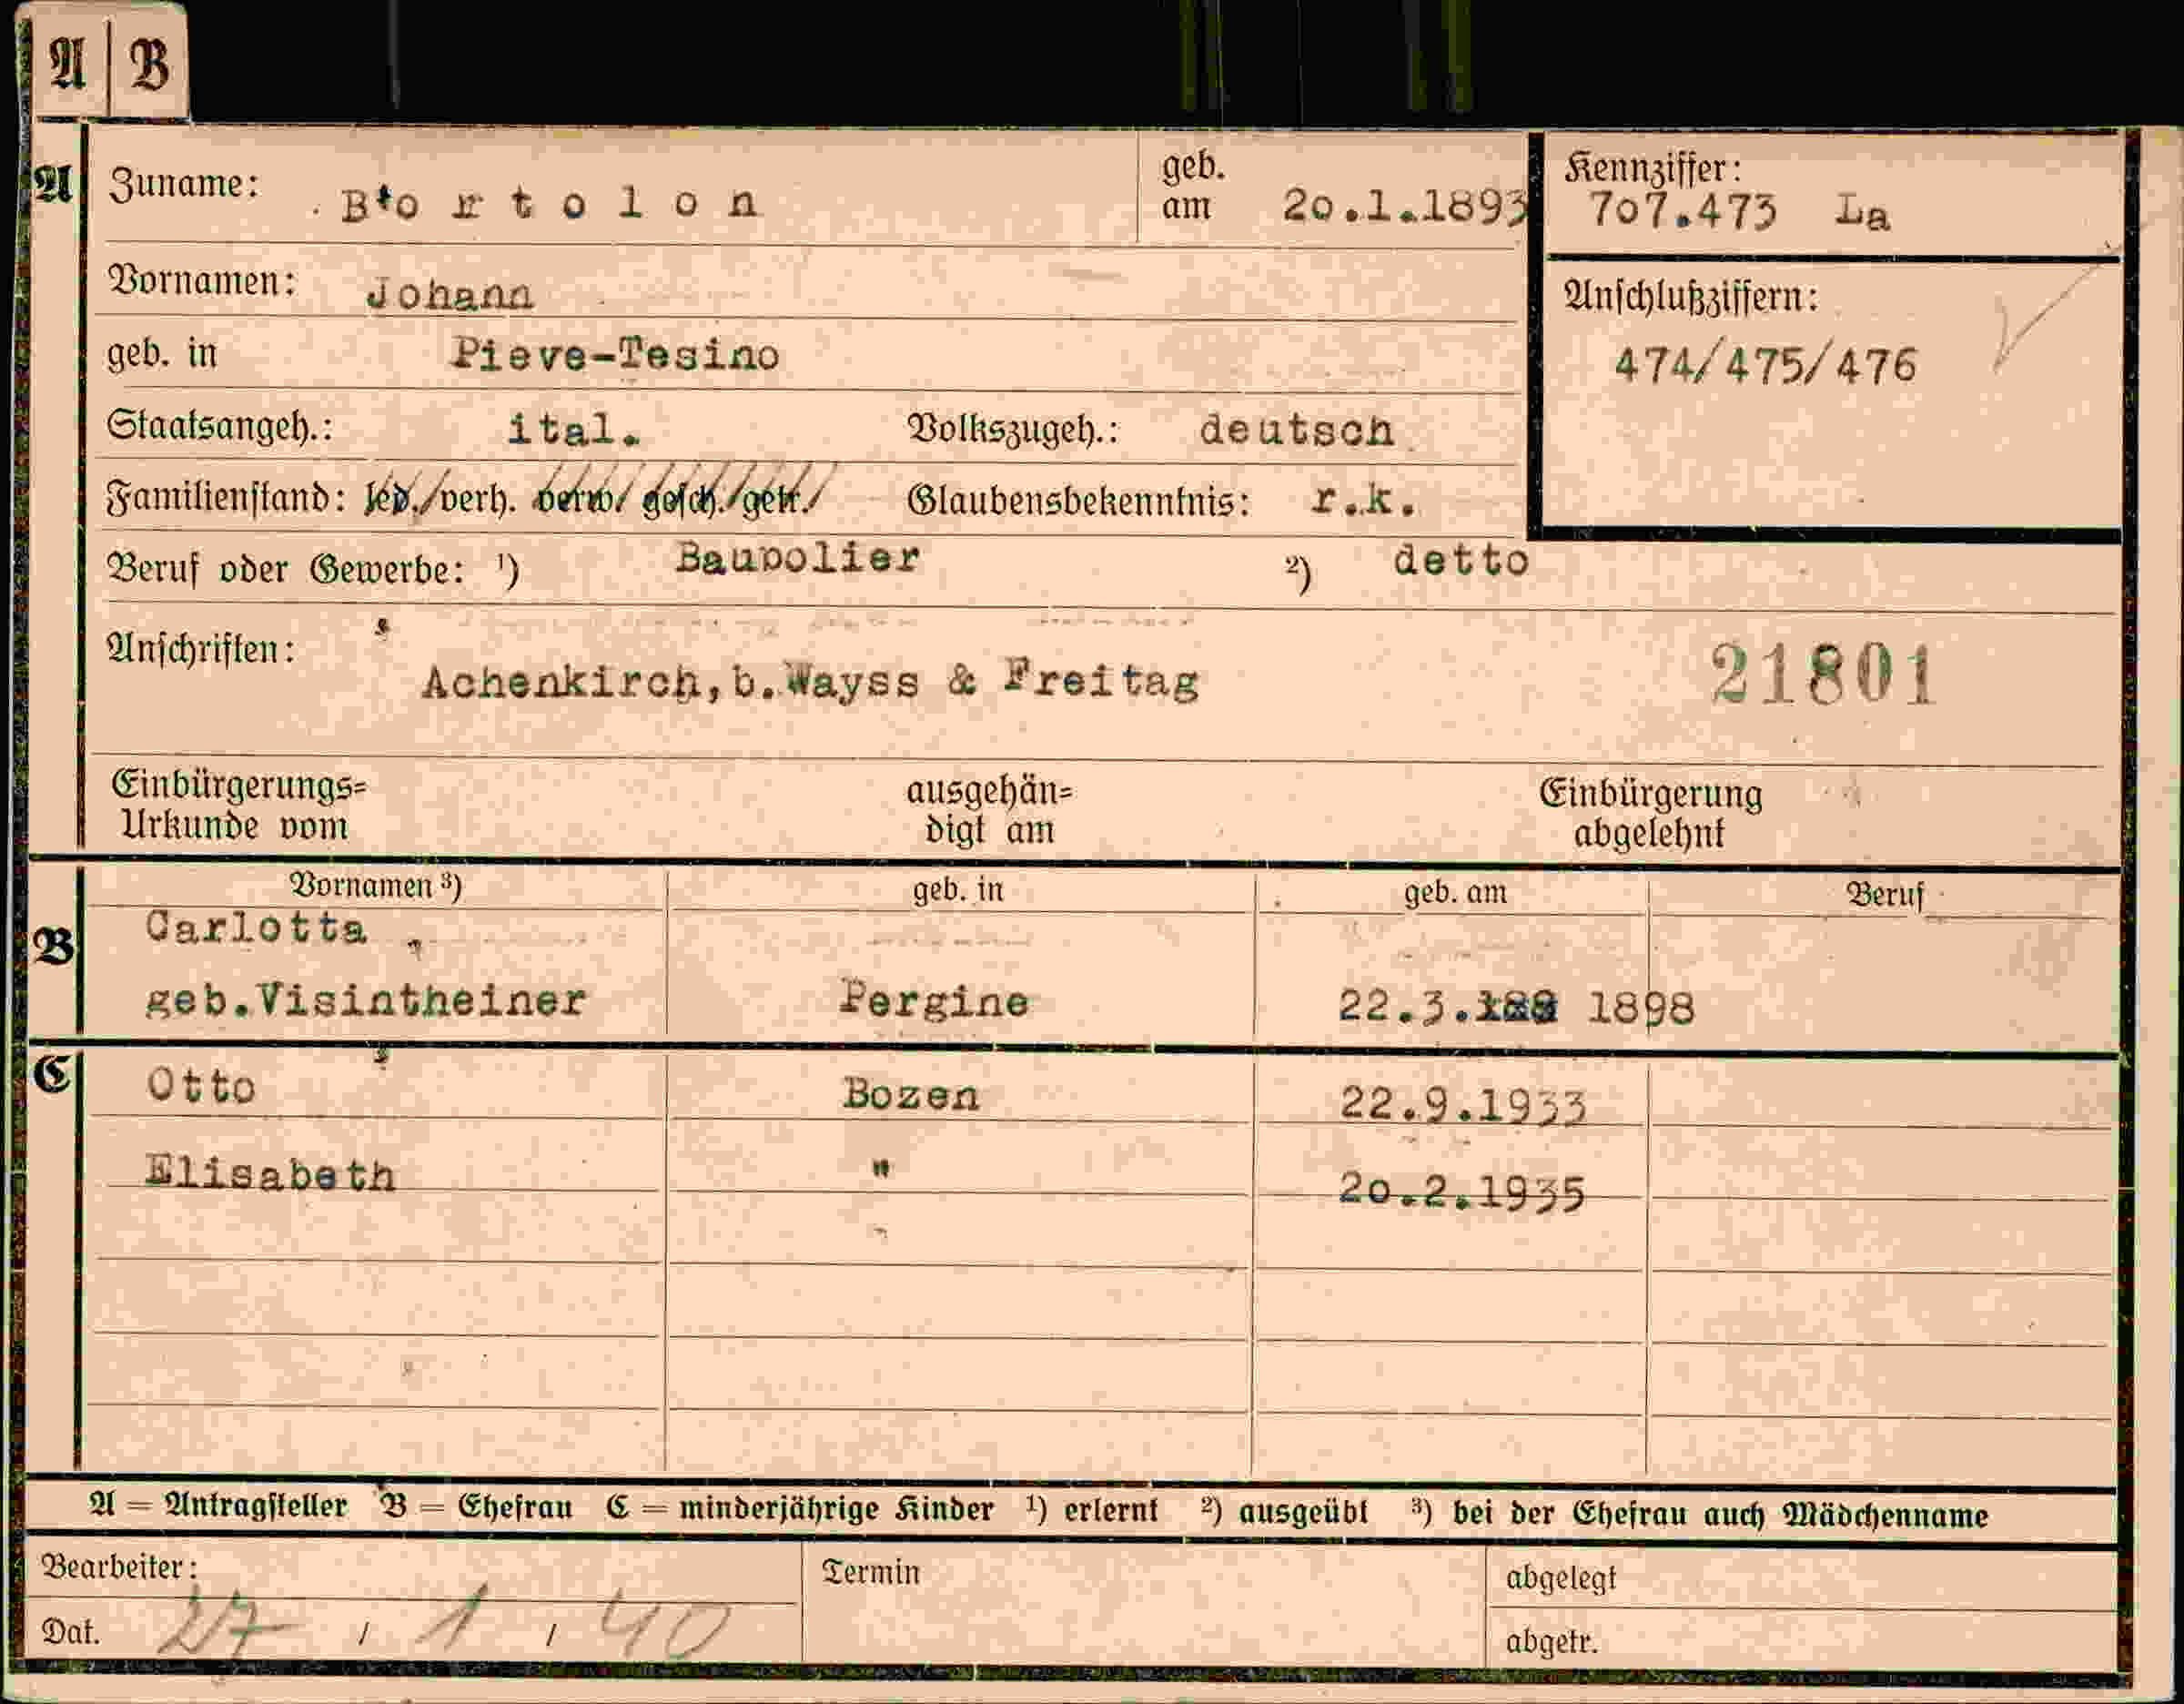 A B
A Zuname: B o r t o l o n geb. am 20.1.1893
Kennziffer: 707.473 La
Vornamen: Johann
Anschlußziffern:
474/475/476
geb. in Pieve-Tesino
Staatsangeh.: ital. Volkszugeh.: deutsch
Familienstand: led./verh. verw/ gesch./getr./ Glaubensbekenntnis: r.k.
Beruf oder Gewerbe: ¹) Baupolier ²) detto
Anschriften:
Achenkirch,b.Wayss & Freitag 21801
Einbürgerungs= ausgehän= Einbürgerung
Urkunde vom digt am abgelehnt
Vornamen ³) geb. in geb. am Beruf
B Carlotta
geb.Visintheiner Pergine 22.3. 1898
C Otto Bozen 22.9.1933
Elisabeth " 20.2.1935
A = Antragsteller B = Ehefrau C = minderjährige Kinder ¹) erlernt ²) ausgeübt ³) bei der Ehefrau auch Mädchenname
Bearbeiter: Termin abgelegt
Dat. 27 / 1 / 40 abgetr.